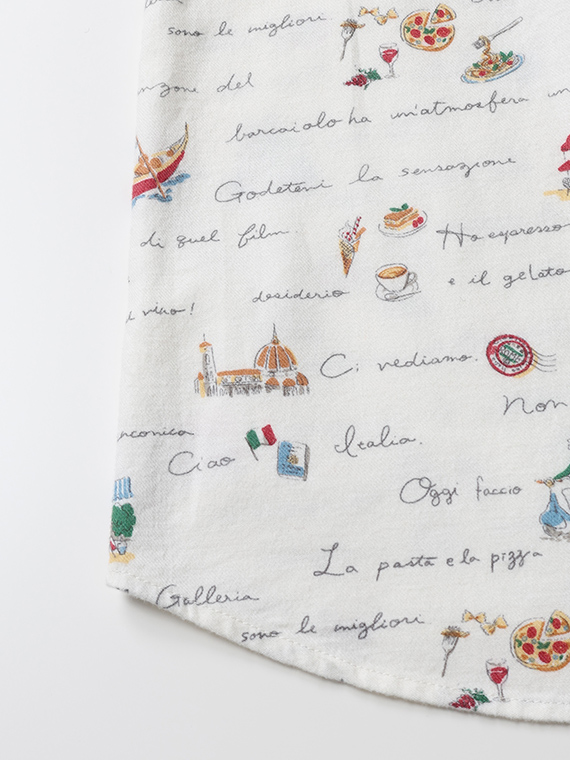 sono le migliori
nzone del
barcaiolo ha un'atmosfera un
Godetevi la sensazione
di quel film.
Ho espresso
desiderio e il gelato
vino!
Ci vediamo.
Non
Ciao Italia.
Oggi faccio
La pasta e la pizza
Galleria
sono le migliori